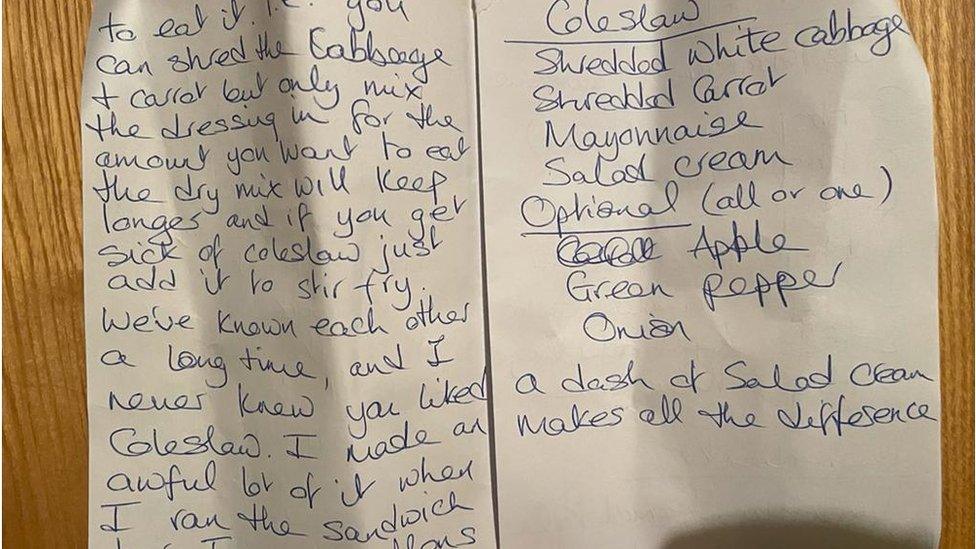 to eat it. I.e. you
can shred the Cabbage
+ carrot but only mix
the dressing in for the
amount you want to eat
the dry mix will keep
longer and if you get
sick of coleslaw just
add it to stir fry.
We've known each other
a long time, and I
never knew you liked
Coleslaw. I made an
awful lot of it when
I ran the sandwich
Coleslaw
Shredded white cabbage
Shredded Carrot
Mayonnaise
Salad cream
Optional (all or one)
Apple
Green pepper
Onion
a dash of Salad Cream
makes all the difference